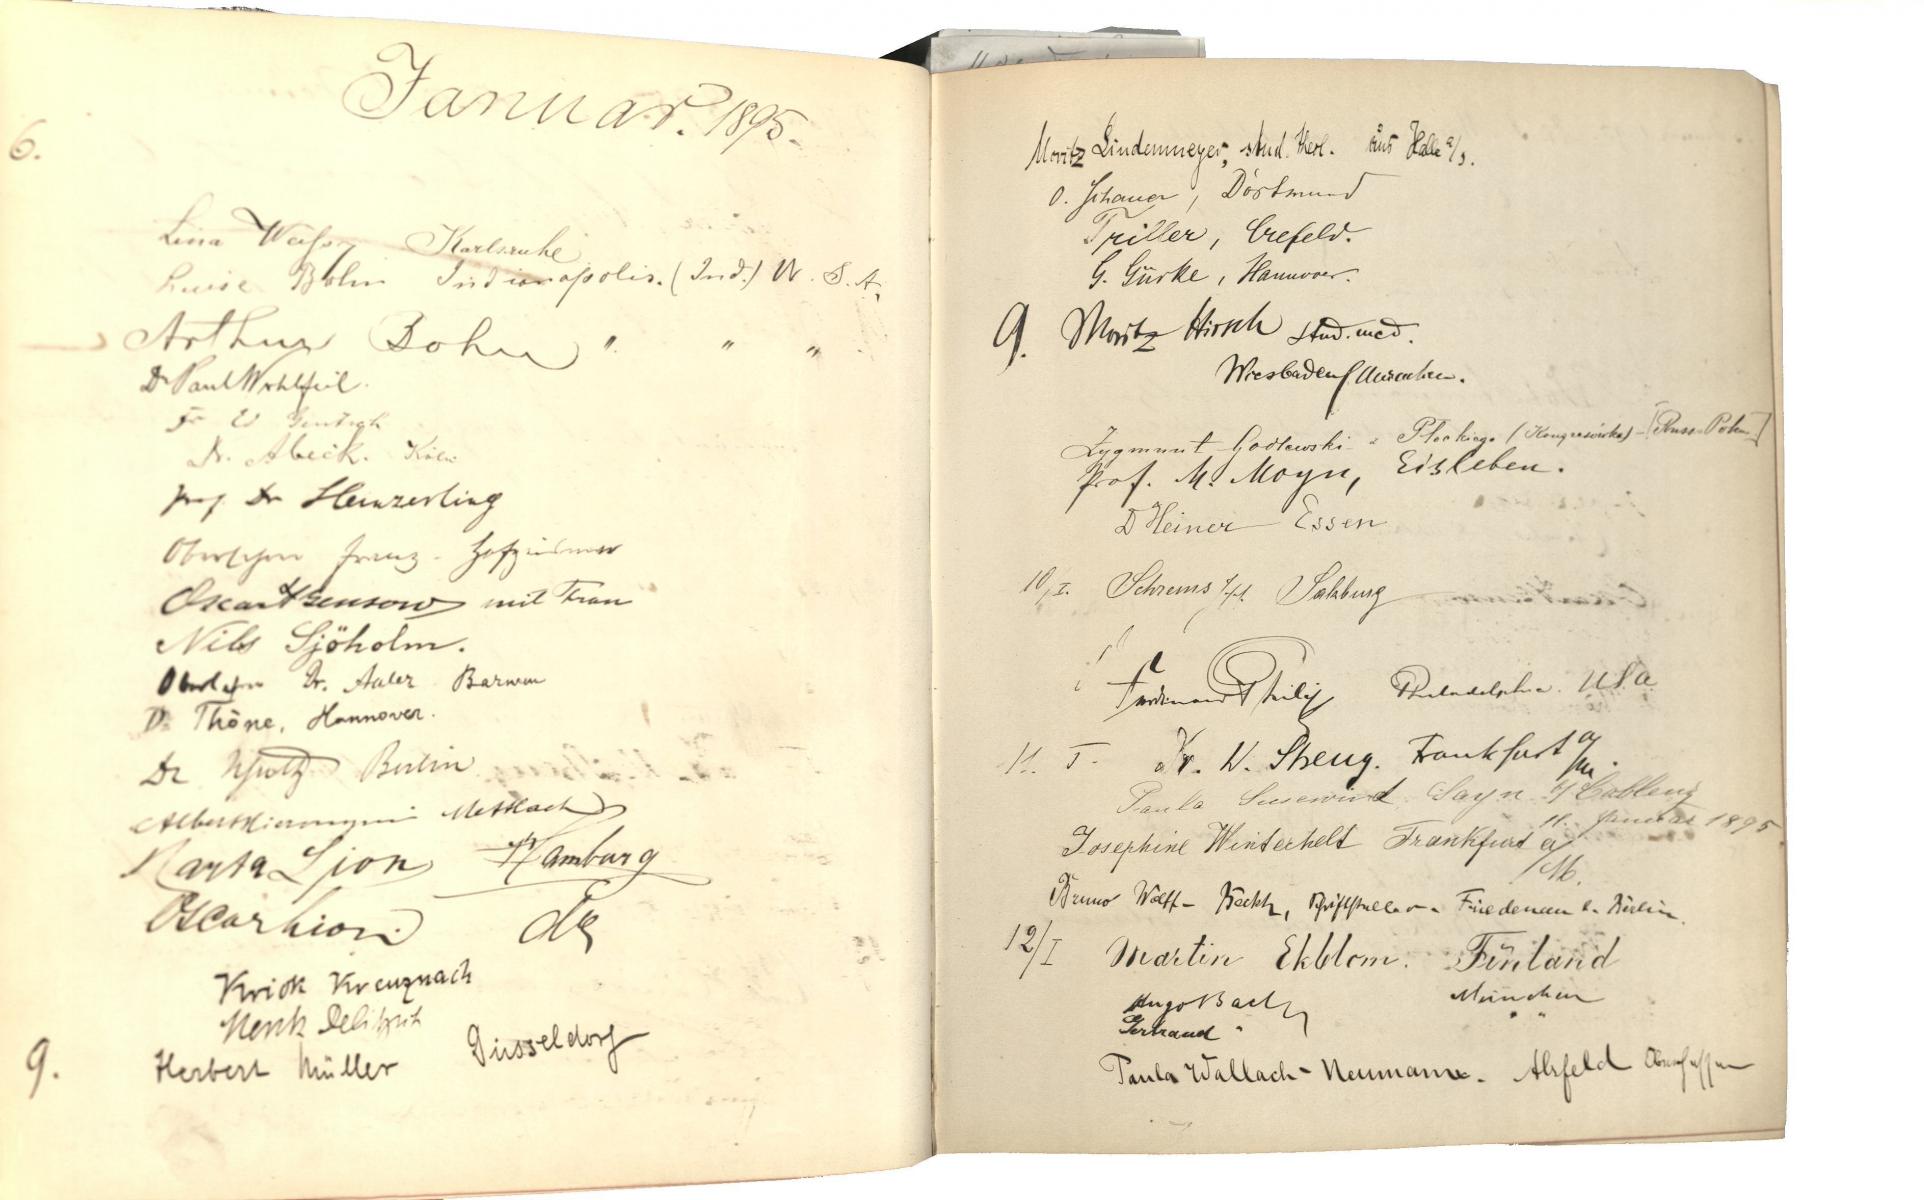 Januar. 1895.
6.
Lina Karlsruhe
Luise Bohn Indianapolis. (Ind.) U. S. A.
Arthur Bohn " " "
Dr Paul Wohlfeil.
Dr. Abeck. Köln
Prof. Dr Heinzerling
Oscar mit Frau
Nils Sjöholm.
Dr. Adler Barmen
Dr Thöne, Hannover.
Dr Berlin
Mettlach
Marta Lion Hamburg
Oscar Lion do
Krick Kreuznach
Menk Delitzsch
9. Herbert Müller Düsseldorf
Moritz Lindenmeyer, stud. theol. aus Halle a/S.
O. Schauer, Dortmund
Triller, Crefeld.
G. Gürke, Hannover.
9. Moritz Hirsch stud. med.
Wiesbaden / München.
Zygmunt Godlewski z Płockiego (Kongresówka) - [Russ. Polen]
Prof. M. Moyn, Eisleben.
Dr Heiner Essen
10/I. Schrems Salzburg
Ferdinand Philip Philadelphia. USA
11. I. Dr. W. Frankfurt a/M.
Paula Sayn b/ Coblenz
11. Januar 1895
Josephine Winterhelt Frankfurt a/M.
Bruno Wolff- Schriftsteller Friedenau b. Berlin.
12/I Martin Ekblom. Finland
Hugo Bach München
Gertraud " " "
Paula Wallach-Neumann. Alsfeld Oberhessen